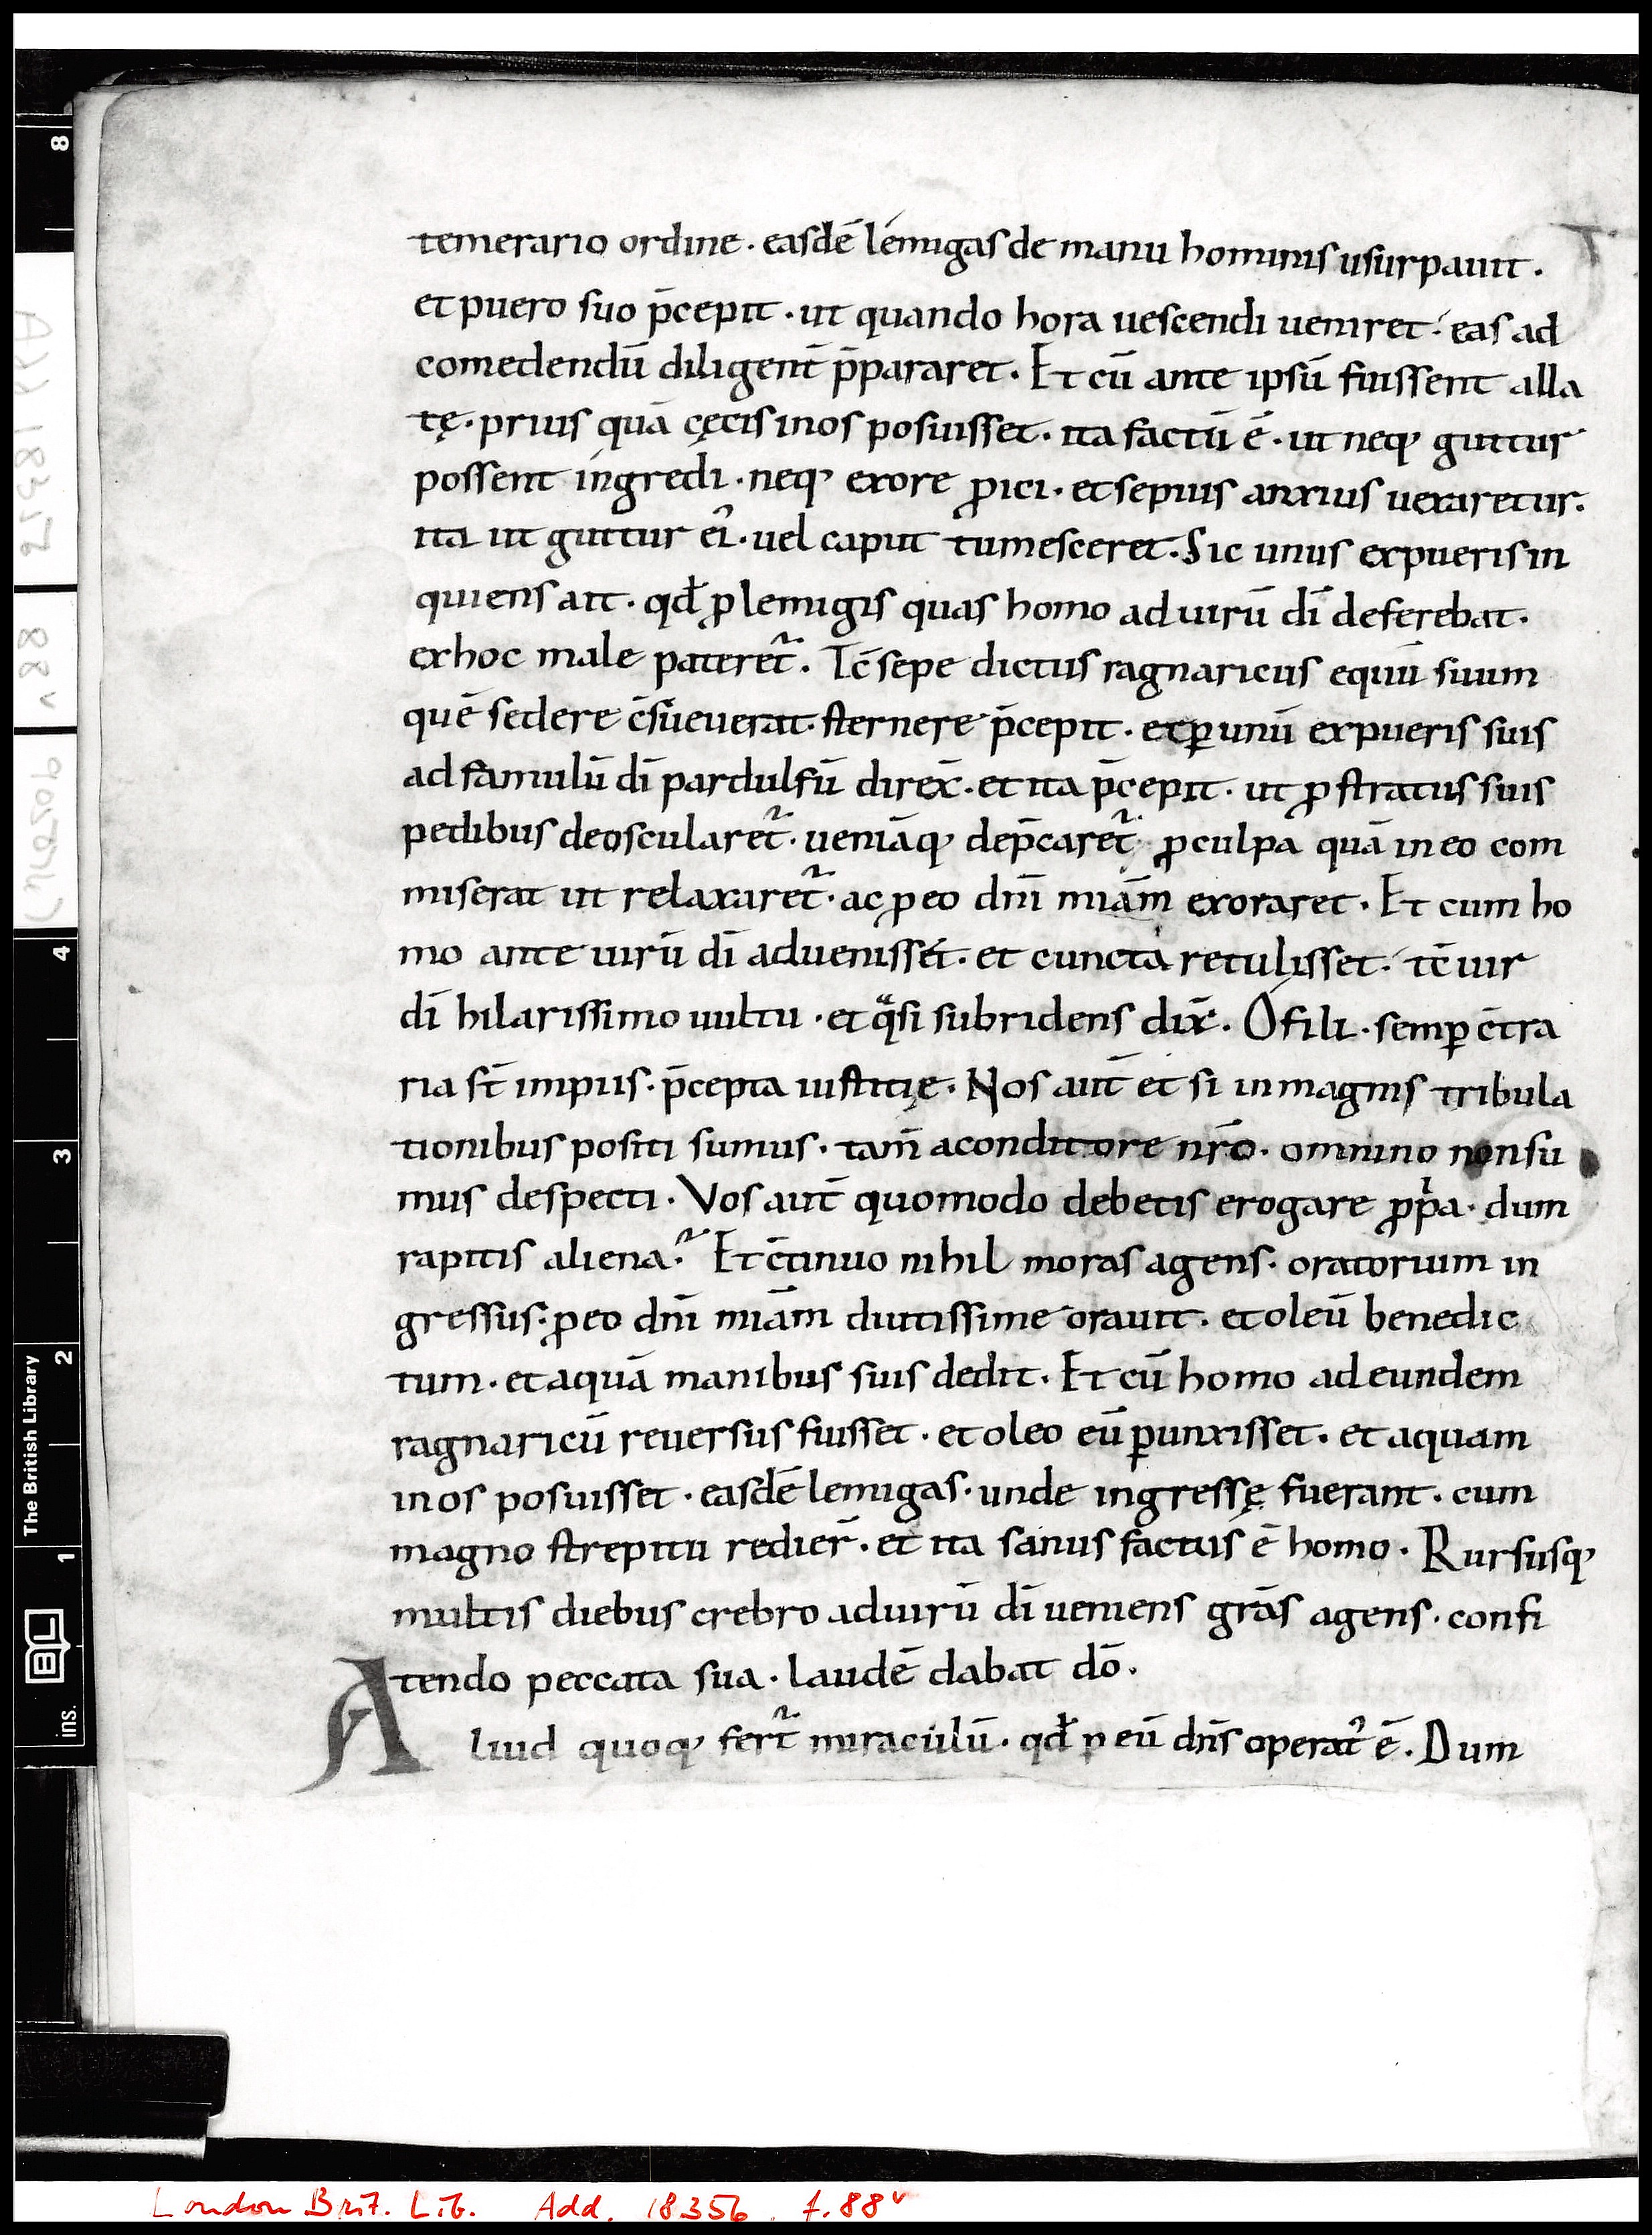 temerario ordine · easdē lémigas de manu hominis usurpauit ·
et puero suo p̄cepit · ut quando hora uescendi ueniret · eas ad
comedendū diligent̄ p̄pararet · Et cū ante ipsū fuissent alla
tę · prius quā cęcis inos posuisset · ita factū ē · ut neq; guttur
possent ingredi · neq; exore ꝓici · et sepius anxius uexaretur ·
ita ut guttur ei᷒ · uel caput tumesceret · Sic unus expueris in
quiens ait · qđ ꝓ lemigis quas homo ad uirū dī deferebat ·
exhoc male pateret᷑ · Tc̄ sepe dictus ragnaricus equū suum
quē sedere c̄sueuerat · sternere p̄cepit · et ꝑ unū expueris suis
ad famulū dī pardulfū direx̄ · et ita p̄cepit · ut ꝓstratus suis
pedibus deoscularet᷑ · ueniāq; dep̄caret᷑ · ꝓ culpa quā in eo com
miserat ut relaxaret᷑ · ac ꝓ eo dn̄i miām exoraret · Et cum ho
mo ante uirū dī aduenisset · et cuncta retulisset · tc̄ uir
dī hilarissimo uultu · et qͣsi subridens dix̄ · O fili · semꝑ c̄tra
ria st̄ impiis · p̄cepta iustitię · Nos aut̄ et si in magnis tribula
tionibus positi sumus · tam̄ aconditore nr̄o · omnino non su
mus despecti · Vos aut̄ quomodo debetis erogare ꝓpͥa · dum
rapitis aliena? Et c̄tinuo nihil moras agens · oratorium in
gressus · ꝓ eo dn̄i miām diutissime orauit · et oleū benedic
tum · et aquā manibus suis dedit · Et cū homo ad eundem
ragnaricū reuersus fuisset · et oleo eū ꝑunxisset · et aquam
inos posuisset · easdē lemigas · unde ingressę fuerant · cum
magno strepitu redier̄ · et ita sanus factus ē homo · Rursusq;
multis diebus crebro ad uirū dī ueniens grās agens · confi
tendo peccata sua · laudē dabat dō ·
Aliud quoq; fert᷑ miraculū · qđ ꝑ eū dn̄s operat᷒ ē · Dum
8
4
3
2
1
ins.
The British Library
BL
88v
London Brit. Lib. Add. 18356. f. 88v